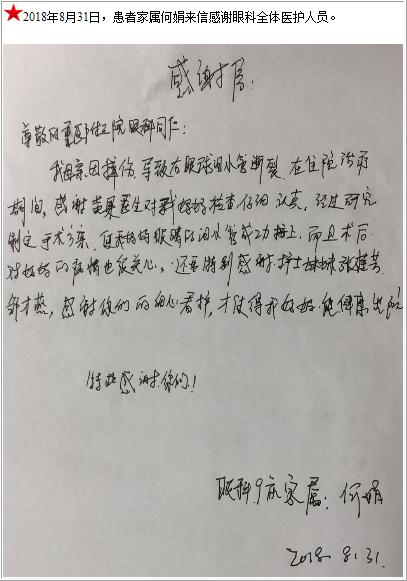 ★2018年8月31日，患者家属何娟来信感谢眼科全体医护人员。
感谢信
尊敬的重医附二院眼科同仁：
我母亲因撞伤，导致右眼球泪小管断裂，在住院治疗
期间，感谢医生对我妈妈检查仔细认真，经过研究
制定手术方案，使我妈妈眼睛的泪小管成功接上，而且术后
对妈妈的病情也很关心，还要特别感谢护士妹妹张
邹才燕，感谢你们的细心看护，才使得我妈妈能健康出院
特此感谢你们！
眼科9床家属：何娟
2018. 8. 31.